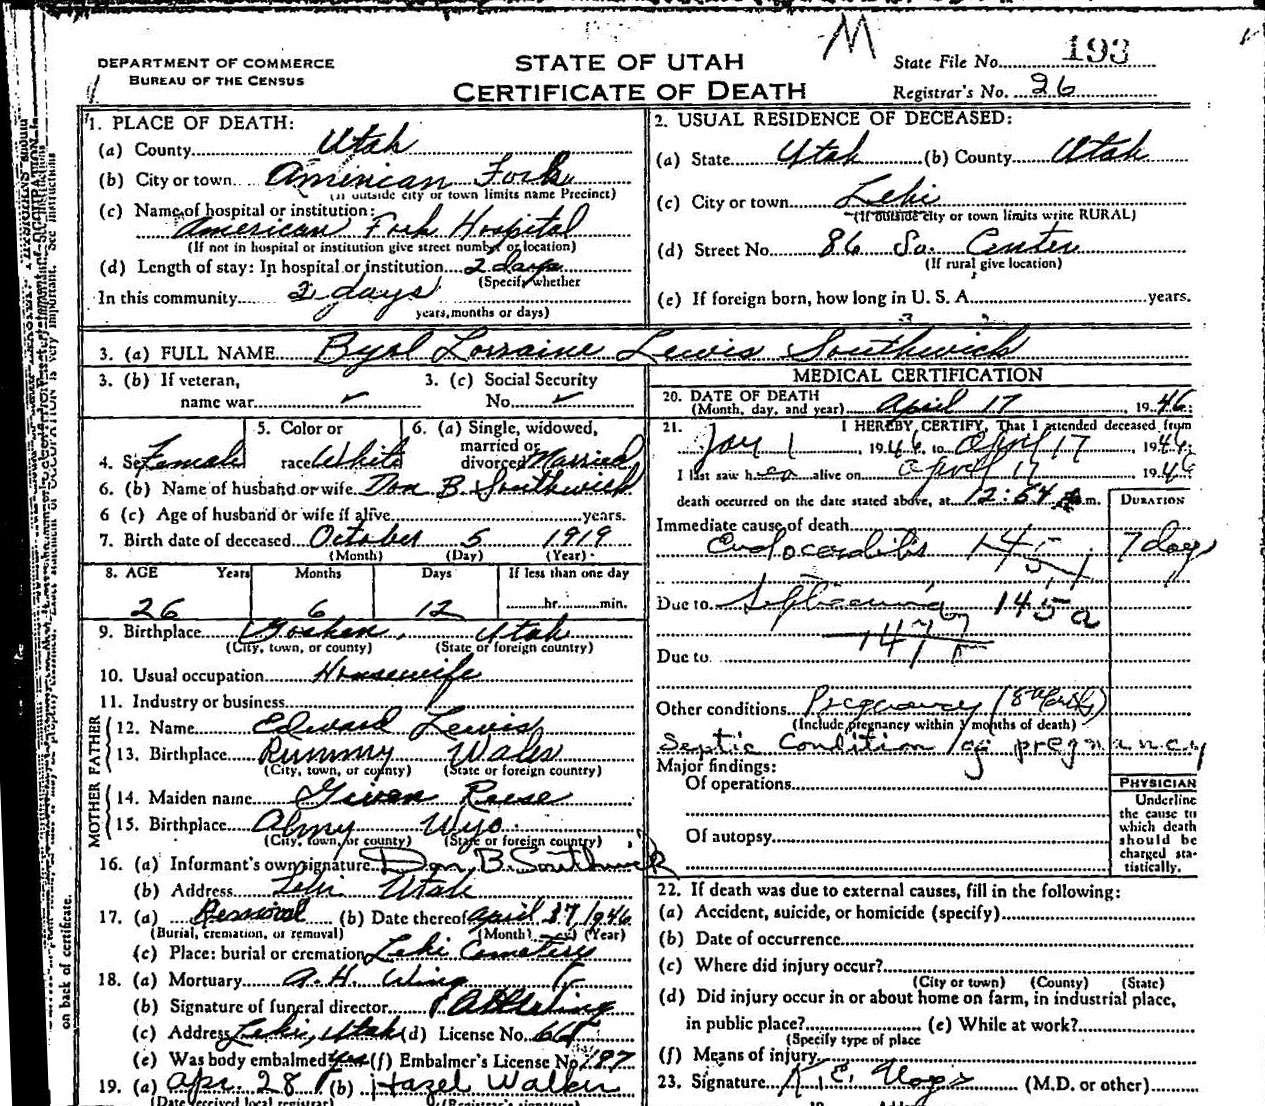 M
DEPARTMENT OF COMMERCE
BUREAU OF THE CENSUS
STATE OF UTAH
CERTIFICATE OF DEATH
State File No. 193
Registrar's No. 26
1. PLACE OF DEATH:
(a) County Utah
(b) City or town American Fork
(If outside city or town limits name Precinct)
(c) Name of hospital or institution:
American Fork Hospital
(If not in hospital or institution give street number or location)
(d) Length of stay: In hospital or institution 2 days
(Specify whether
In this community 2 days
years, months or days)
2. USUAL RESIDENCE OF DECEASED:
(a) State Utah (b) County Utah
(c) City or town Lehi
(If outside city or town limits write RURAL)
(d) Street No. 86 So. Center
(If rural give location)
(e) If foreign born, how long in U. S. A. years.
3. (a) FULL NAME Byrl Lorraine Lewis Southwick
3. (b) If veteran, 3. (c) Social Security
name war No.
4. Sex Female 5. Color or race White 6. (a) Single, widowed, married or divorced Married
6. (b) Name of husband or wife Don B. Southwick
6 (c) Age of husband or wife if alive years.
7. Birth date of deceased October 5 1919
(Month) (Day) (Year)
8. AGE Years Months Days If less than one day
26 6 12 hr. min.
9. Birthplace Goshen, Utah
(City, town, or county) (State or foreign country)
10. Usual occupation Housewife
11. Industry or business
FATHER
12. Name Edward Lewis
13. Birthplace Wales
(City, town, or county) (State or foreign country)
MOTHER
14. Maiden name Given Reese
15. Birthplace Almy Wyo.
(City, town, or county) (State or foreign country)
16. (a) Informant's own signature Don B. Southwick
(b) Address Lehi Utah
17. (a) Removal (b) Date thereof April 1946
(Burial, cremation, or removal) (Month) (Year)
(c) Place: burial or cremation Lehi Cemetery
18. (a) Mortuary A. H. Wing
(b) Signature of funeral director
(c) Address Lehi, Utah (d) License No.
(e) Was body embalmed yes (f) Embalmer's License No. 197
19. (a) Apr. 28 (b) Hazel Walker
(Date received local registrar) (Registrar's signature)
MEDICAL CERTIFICATION
20. DATE OF DEATH
(Month, day, and year) April 17, 1946.
21. I HEREBY CERTIFY, That I attended deceased from
Jay 1, 1946, to April 17, 1946.
I last saw her alive on April 17 1946
death occurred on the date stated above, at 12:54 m.
DURATION
Immediate cause of death
Endocarditis 145 7 days
Due to Septicemia 145a
147
Due to
Other conditions Pregnancy
(Include pregnancy within 3 months of death)
Septic Condition of pregnancy
Major findings:
Of operations
Of autopsy
PHYSICIAN
Underline
the cause to
which death
should be
charged sta-
tistically.
22. If death was due to external causes, fill in the following:
(a) Accident, suicide, or homicide (specify)
(b) Date of occurrence
(c) Where did injury occur?
(City or town) (County) (State)
(d) Did injury occur in or about home on farm, in industrial place,
in public place? (e) While at work?
(Specify type of place
(f) Means of injury
23. Signature K. E. (M.D. or other)
on back of certificate.